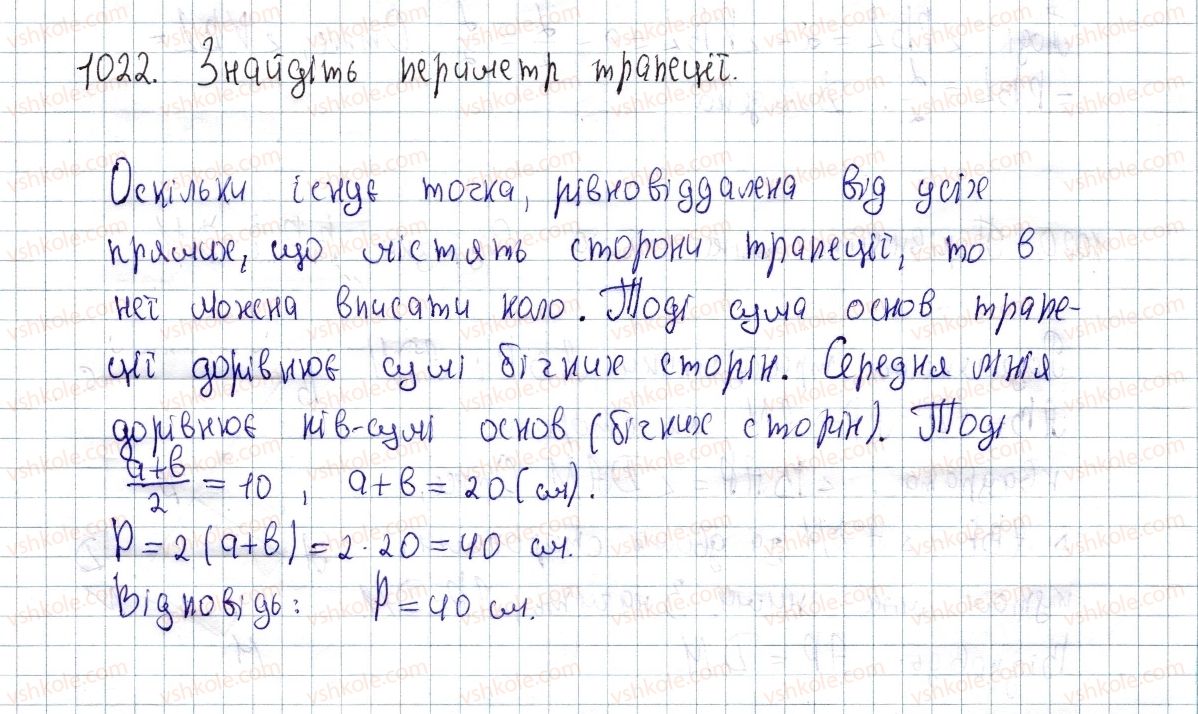 1022. Знайдіть периметр трапеції.
Оскільки існує точка, рівновіддалена від усіх
прямих, що містять сторони трапеції, то в
неї можна вписати коло. Тоді сума основ трапе-
ції дорівнює сумі бічних сторін. Середня лінія
дорівнює пів-сумі основ (бічних сторін). Тоді
(a+b)/2 = 10, a+b = 20 (см).
P = 2(a+b) = 2·20 = 40 см.
Відповідь: P = 40 см.